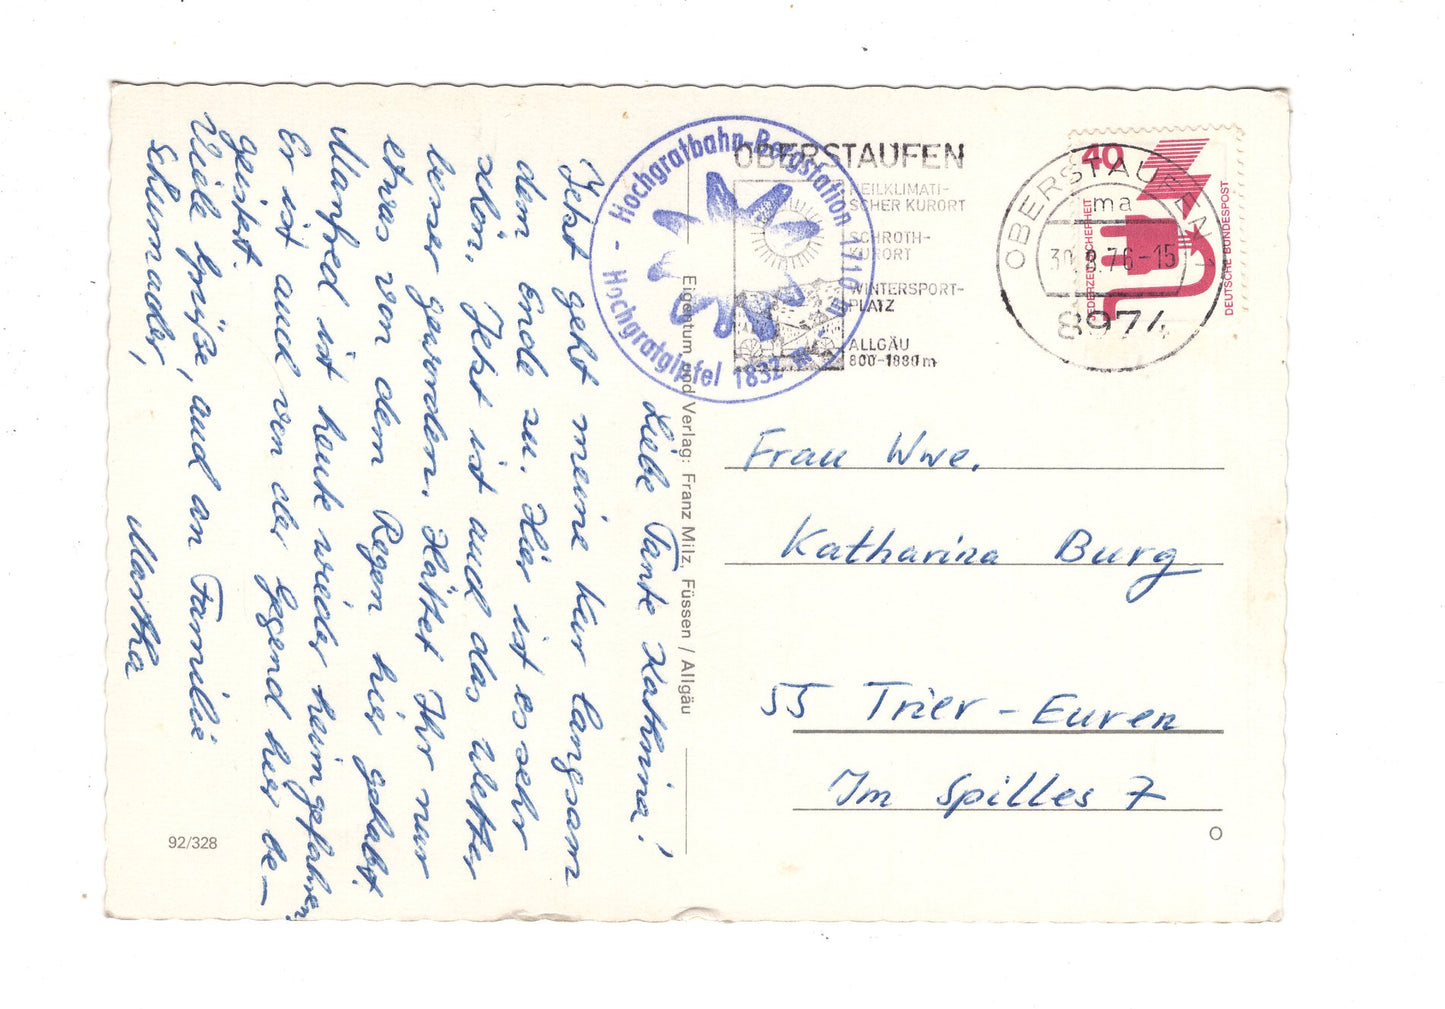 Liebe Tante Kathrina!
Jetzt geht meine Kur langsam
dem Ende zu. Hier ist es sehr
schön. Jetzt ist auch das Wetter
besser geworden. Hättet Ihr nur
etwas von dem Regen hier gehabt.
Manfred ist heute wieder heimgefahren
Er ist auch von der Gegend hier be-
geistert.
Viele Grüße, auch an Familie
Schumacher,
Martha
92/328
Eigentum und Verlag: Franz Milz, Füssen / Allgäu
- Hochgratbahn-Bergstation 1710 m
- Hochgratgipfel 1832 m
OBERSTAUFEN
HEILKLIMATI-
SCHER KURORT
SCHROTH-
KURORT
WINTERSPORT-
PLATZ
ALLGÄU
800-1880m
OBERSTAUFEN 1
ma
30.8.76-15
8974
40
JEDERZEIT SICHERHEIT
DEUTSCHE BUNDESPOST
Frau Wwe.
Katharina Burg
55 Trier-Euren
Im Spilles 7
O